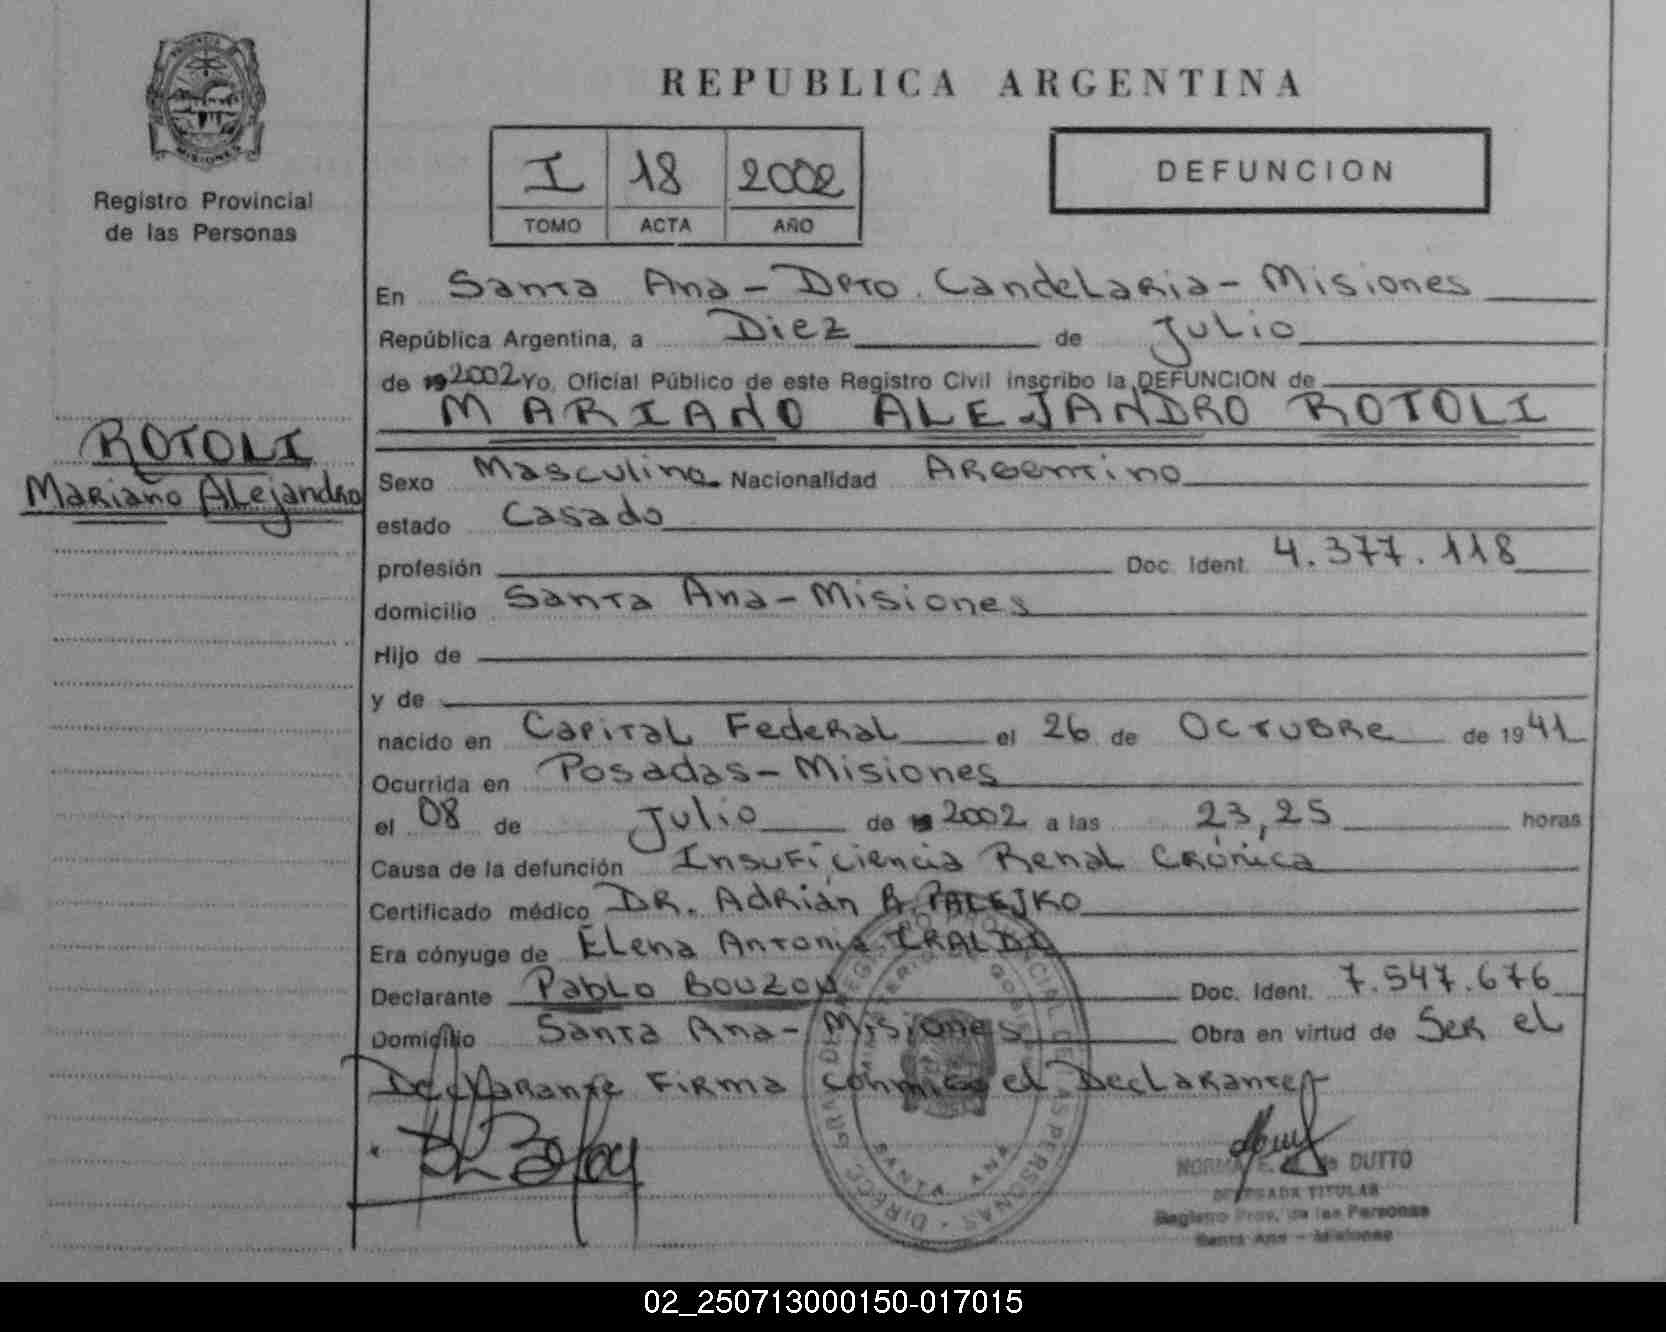 PROVINCIA DE
MISIONES
Registro Provincial
de las Personas
REPUBLICA ARGENTINA
I 18 2002
TOMO ACTA AÑO
DEFUNCION
En Santa Ana - Dpto. Candelaria - Misiones
República Argentina, a Diez de Julio
de 19 2002 Yo, Oficial Público de este Registro Civil inscribo la DEFUNCION de
MARIANO ALEJANDRO ROTOLI
ROTOLI
Mariano Alejandro
Sexo Masculino Nacionalidad Argentino
estado Casado
profesión Doc. Ident. 4.377.118
domicilio Santa Ana - Misiones
Hijo de
y de
nacido en Capital Federal el 26 de Octubre de 1941
Ocurrida en Posadas - Misiones
el 08 de Julio de 19 2002 a las 23,25 horas
Causa de la defunción Insuficiencia Renal Crónica
Certificado médico DR. Adrián A. PALEJKO
Era cónyuge de Elena Antonia IRALDI
Declarante Pablo Bouzou Doc. Ident. 7.547.676
Domicilio Santa Ana - Misiones Obra en virtud de Ser el
Declarante Firma conmigo el Declarante
SANTA ANA
NORMA E. de DUTTO
DELEGADA TITULAR
Registro Prov. de las Personas
Santa Ana - Misiones
02_250713000150-017015